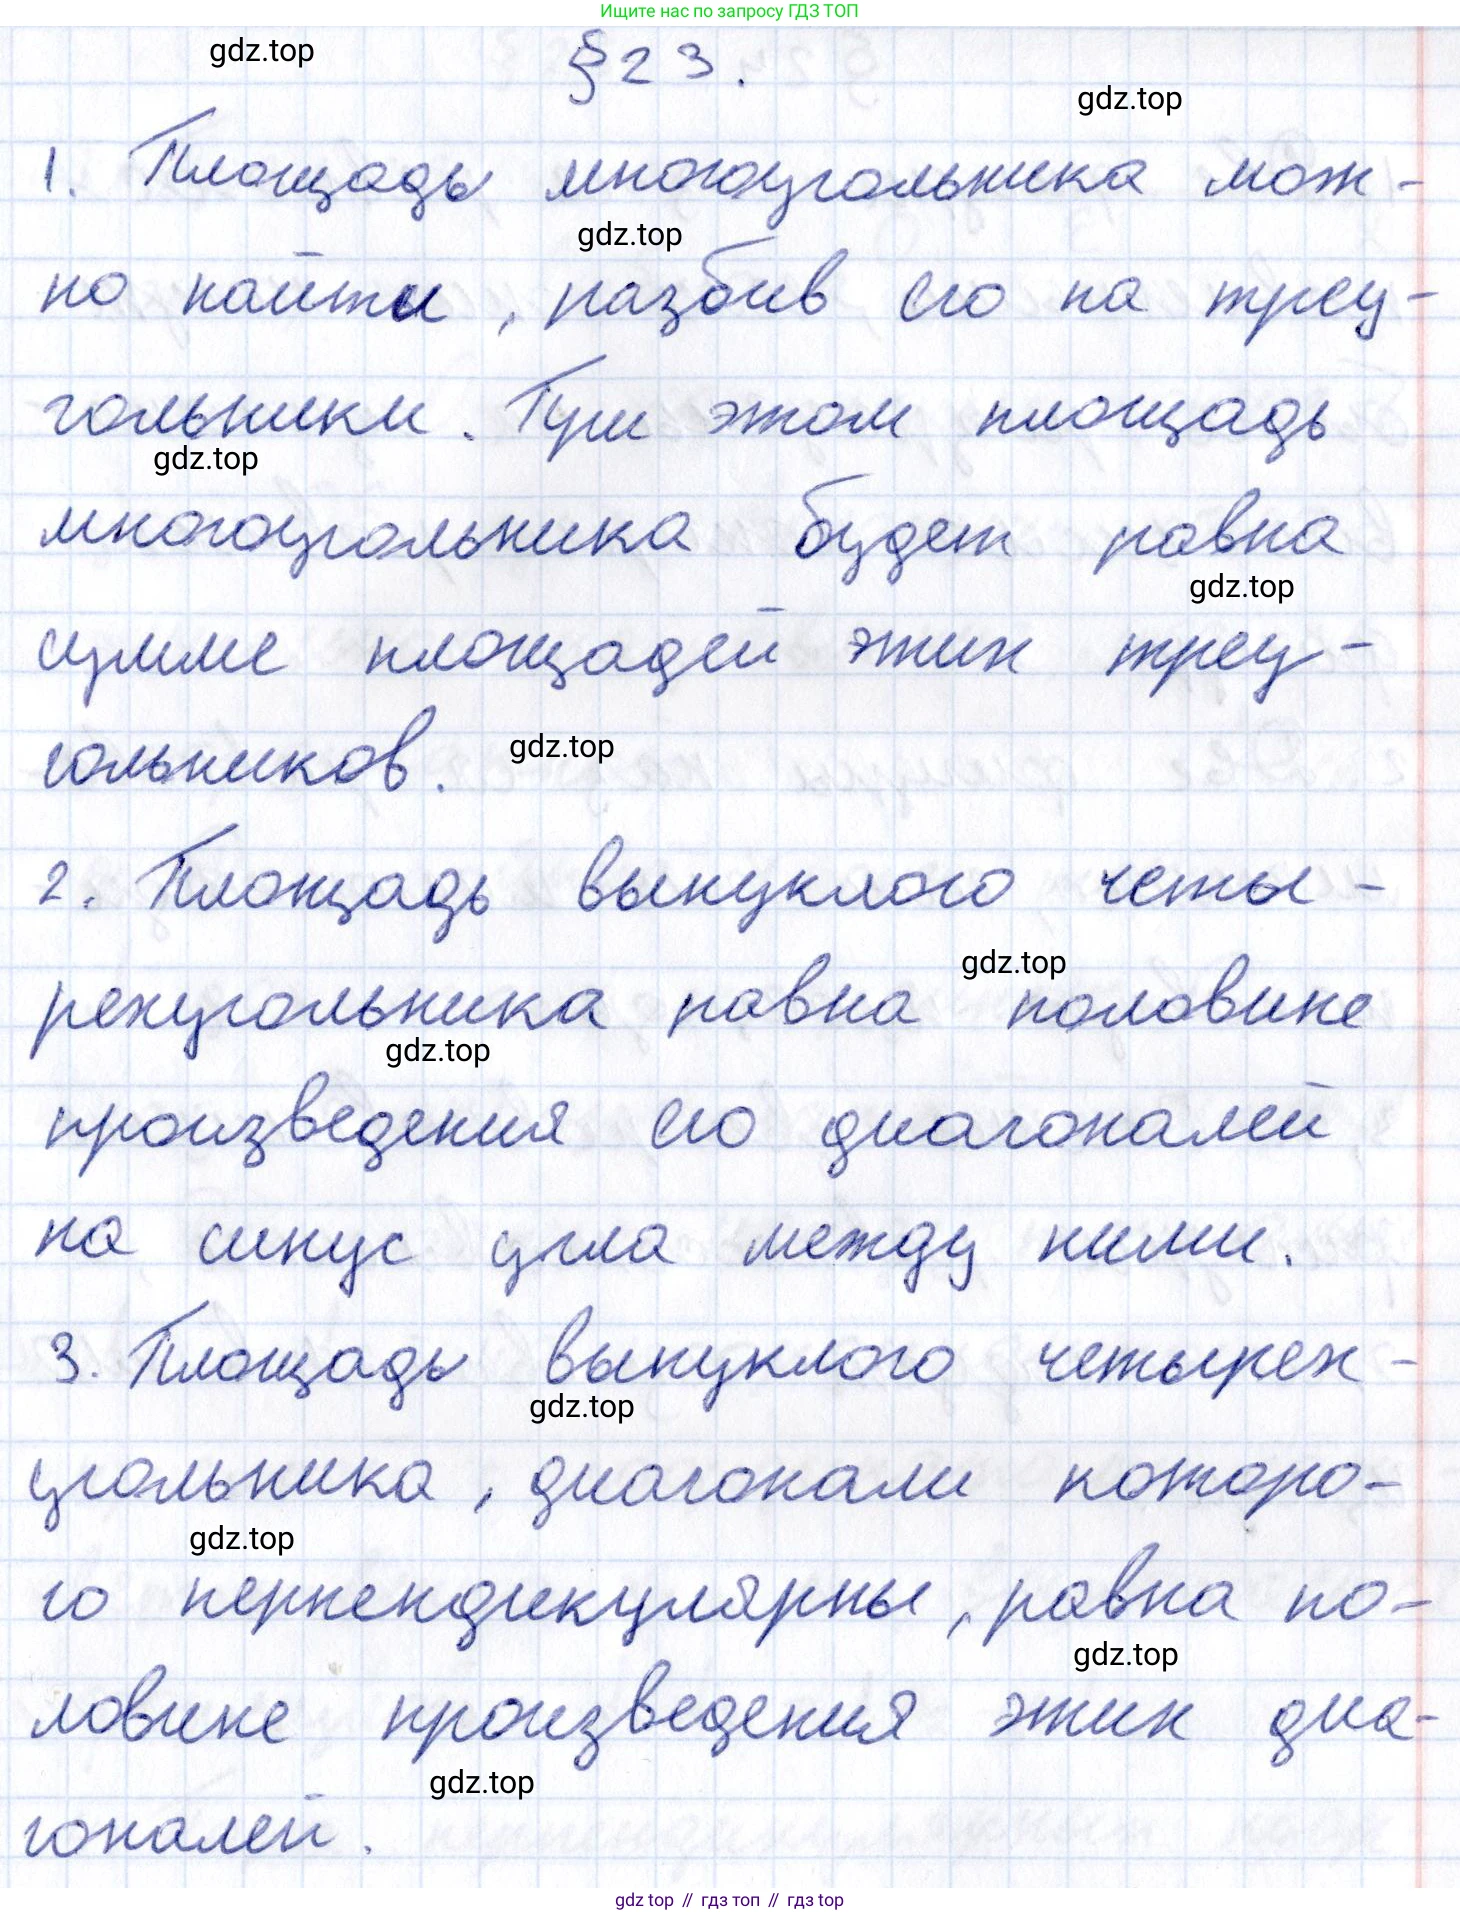 Ищите нас по запросу ГДЗ ТОП
gdz.top
§ 23.
gdz.top
1. Площадь многоугольника мож-
gdz.top
но найти, разбив его на треу-
гольники. При этом площадь
gdz.top
многоугольника будет равна
gdz.top
сумме площадей этих треу-
гольников.
gdz.top
2. Площадь выпуклого четы-
gdz.top
рехугольника равна половине
gdz.top
произведения его диагоналей
на синус угла между ними.
3. Площадь выпуклого четырех-
gdz.top
угольника, диагонали которо-
gdz.top
го перпендикулярны, равна по-
gdz.top
ловине произведения этих диа-
gdz.top
гоналей.
gdz top // гдз топ // гдз top